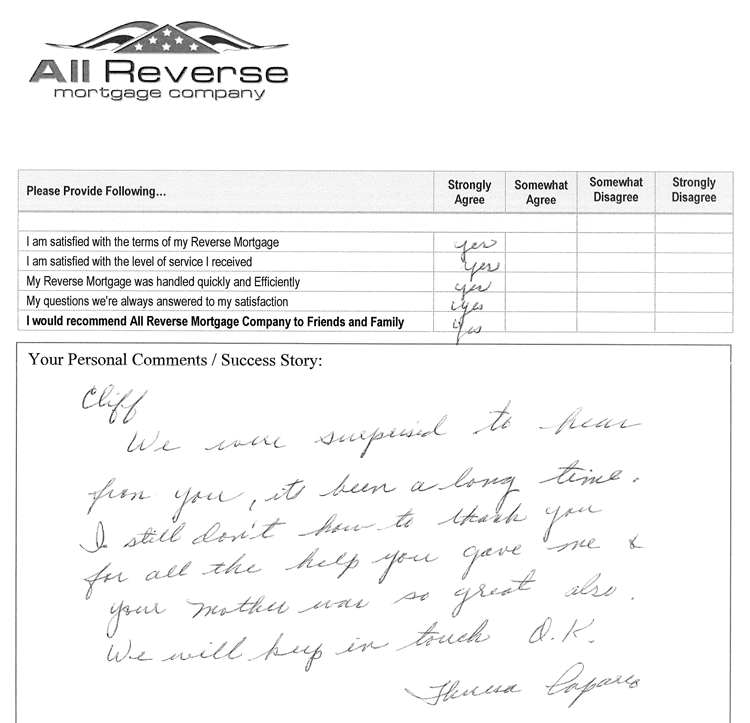 All Reverse
mortgage company
Please Provide Following... Strongly Agree Somewhat Agree Somewhat Disagree Strongly Disagree
I am satisfied with the terms of my Reverse Mortgage yes
I am satisfied with the level of service I received yes
My Reverse Mortgage was handled quickly and Efficiently yes
My questions we're always answered to my satisfaction yes
I would recommend All Reverse Mortgage Company to Friends and Family yes
Your Personal Comments / Success Story:
Cliff
We were surprised to hear
from you, its been a long time.
I still don't how to thank you
for all the help you gave me &
your mother was so great also.
We will keep in touch O.K.
Theresa